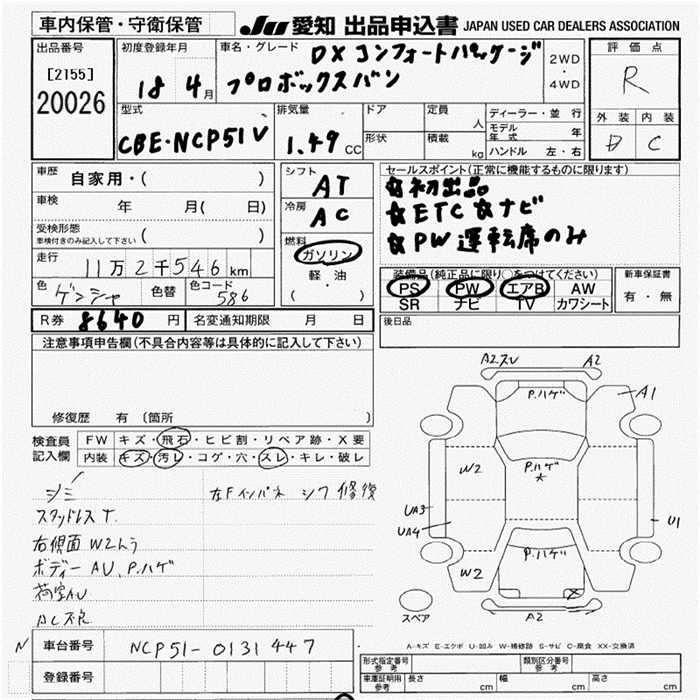 車内保管・守衛保管
JU 愛知 出品申込書 JAPAN USED CAR DEALERS ASSOCIATION
出品番号
[2155]
20026
初度登録年月
18 4月
車名・グレード
DX コンフォートパッケージ
プロボックスバン
2WD
・
4WD
評価点
R
外装 内装
D C
型式
CBE・NCP51V
排気量
1.49 CC
ドア
形状
定員
人
積載
kg
ディーラー・並行
モデル年式 年
ハンドル 左・右
車歴
自家用・( )
車検
年 月( 日)
受検形態
車検付きのみ記入して下さい ( )
走行
11万2千546km
色 ゲンシャ 色替 色コード 586
シフト
AT
冷房
AC
燃料
ガソリン
軽・油
( )
セールスポイント(正常に機能するものに限ります)
☆初出品
☆ETC ☆ナビ
☆PW運転席のみ
装備品(純正品に限り○をつけてください)
PS PW エアB AW
SR ナビ TV カワシート
新車保証書
有・無
R券 8640 円 名変通知期限 月 日
後日品
注意事項申告欄(不具合内容等は具体的に記入して下さい)
修復歴 有 (箇所 )
検査員記入欄
FW キズ・飛石・ヒビ割・リペア跡・X要
内装 キズ・汚レ・コゲ・穴・スレ・キレ・破レ
シミ 左Fインパネ シワ 修復
スタッドレスT.
右側面 W2んう
ボディー AU、P.ハゲ
荷室AU
AC不良
A2スレ A2
P.ハゲ
A1
W2
P.ハゲ
UA3
UA4
U1
P.ハゲ
W2
X
A2
スペア
A-キズ E-エクボ U-凹み W-補修跡 S-サビ C-腐食 XX-交換済
N 車台番号 NCP51-0131447
登録番号
形式指定番号 参考 類別区分番号 参考
車庫証明用 参考 長さ cm 幅 cm 高さ cm